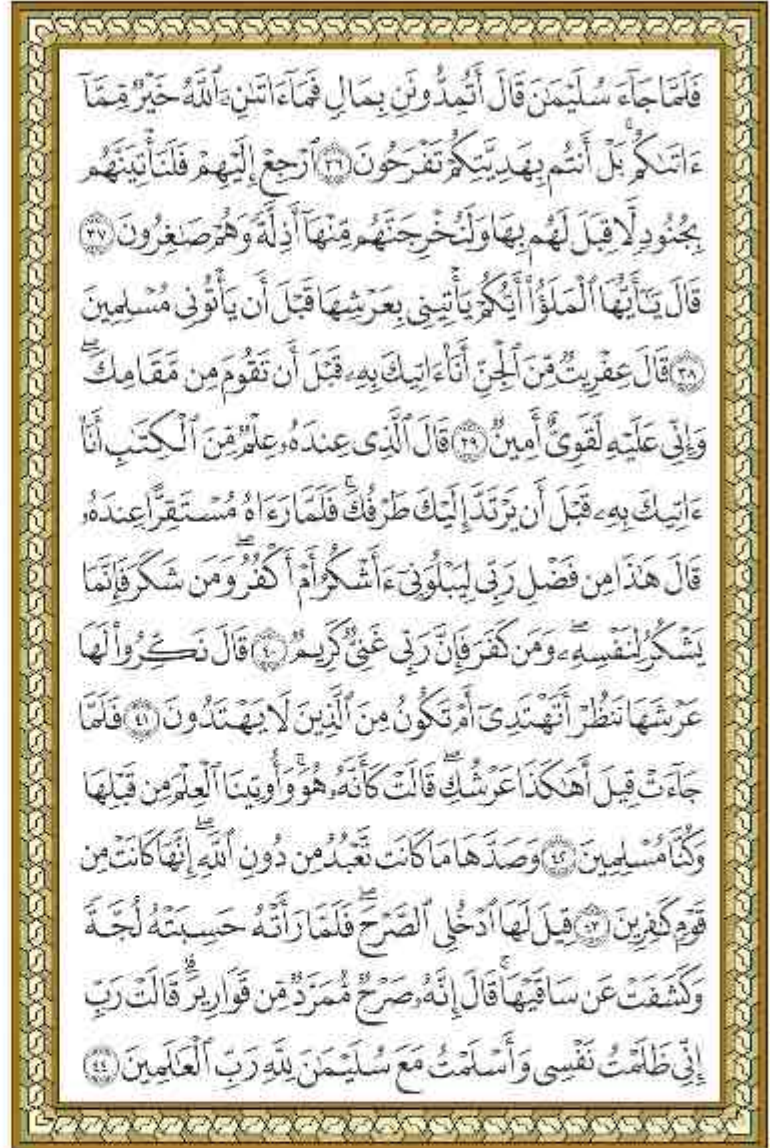 فَلَمَّا جَآءَ سُلَيْمَٰنَ قَالَ أَتُمِدُّونَنِ بِمَالٍ فَمَآ ءَاتَىٰنِۦَ ٱللَّهُ خَيْرٌ مِّمَّآ
ءَاتَىٰكُمۚ بَلْ أَنتُم بِهَدِيَّتِكُمْ تَفْرَحُونَ ٣٦ ٱرْجِعْ إِلَيْهِمْ فَلَنَأْتِيَنَّهُم
بِجُنُودٍ لَّا قِبَلَ لَهُم بِهَا وَلَنُخْرِجَنَّهُم مِّنْهَآ أَذِلَّةً وَهُمْ صَٰغِرُونَ ٣٧
قَالَ يَٰٓأَيُّهَا ٱلْمَلَؤُا۟ أَيُّكُمْ يَأْتِينِى بِعَرْشِهَا قَبْلَ أَن يَأْتُونِى مُسْلِمِينَ
٣٨ قَالَ عِفْرِيتٌ مِّنَ ٱلْجِنِّ أَنَا۠ ءَاتِيكَ بِهِۦ قَبْلَ أَن تَقُومَ مِن مَّقَامِكَۖ
وَإِنِّى عَلَيْهِ لَقَوِىٌّ أَمِينٌ ٣٩ قَالَ ٱلَّذِى عِندَهُۥ عِلْمٌ مِّنَ ٱلْكِتَٰبِ أَنَا۠
ءَاتِيكَ بِهِۦ قَبْلَ أَن يَرْتَدَّ إِلَيْكَ طَرْفُكَۚ فَلَمَّا رَءَاهُ مُسْتَقِرًّا عِندَهُۥ
قَالَ هَٰذَا مِن فَضْلِ رَبِّى لِيَبْلُوَنِىٓ ءَأَشْكُرُ أَمْ أَكْفُرُۖ وَمَن شَكَرَ فَإِنَّمَا
يَشْكُرُ لِنَفْسِهِۦۖ وَمَن كَفَرَ فَإِنَّ رَبِّى غَنِىٌّ كَرِيمٌ ٤٠ قَالَ نَكِّرُوا۟ لَهَا
عَرْشَهَا نَنظُرْ أَتَهْتَدِىٓ أَمْ تَكُونُ مِنَ ٱلَّذِينَ لَا يَهْتَدُونَ ٤١ فَلَمَّا
جَآءَتْ قِيلَ أَهَٰكَذَا عَرْشُكِۖ قَالَتْ كَأَنَّهُۥ هُوَۚ وَأُوتِينَا ٱلْعِلْمَ مِن قَبْلِهَا
وَكُنَّا مُسْلِمِينَ ٤٢ وَصَدَّهَا مَا كَانَت تَّعْبُدُ مِن دُونِ ٱللَّهِۖ إِنَّهَا كَانَتْ مِن
قَوْمٍ كَٰفِرِينَ ٤٣ قِيلَ لَهَا ٱدْخُلِى ٱلصَّرْحَۖ فَلَمَّا رَأَتْهُ حَسِبَتْهُ لُجَّةً
وَكَشَفَتْ عَن سَاقَيْهَاۚ قَالَ إِنَّهُۥ صَرْحٌ مُّمَرَّدٌ مِّن قَوَارِيرَۗ قَالَتْ رَبِّ
إِنِّى ظَلَمْتُ نَفْسِى وَأَسْلَمْتُ مَعَ سُلَيْمَٰنَ لِلَّهِ رَبِّ ٱلْعَٰلَمِينَ ٤٤